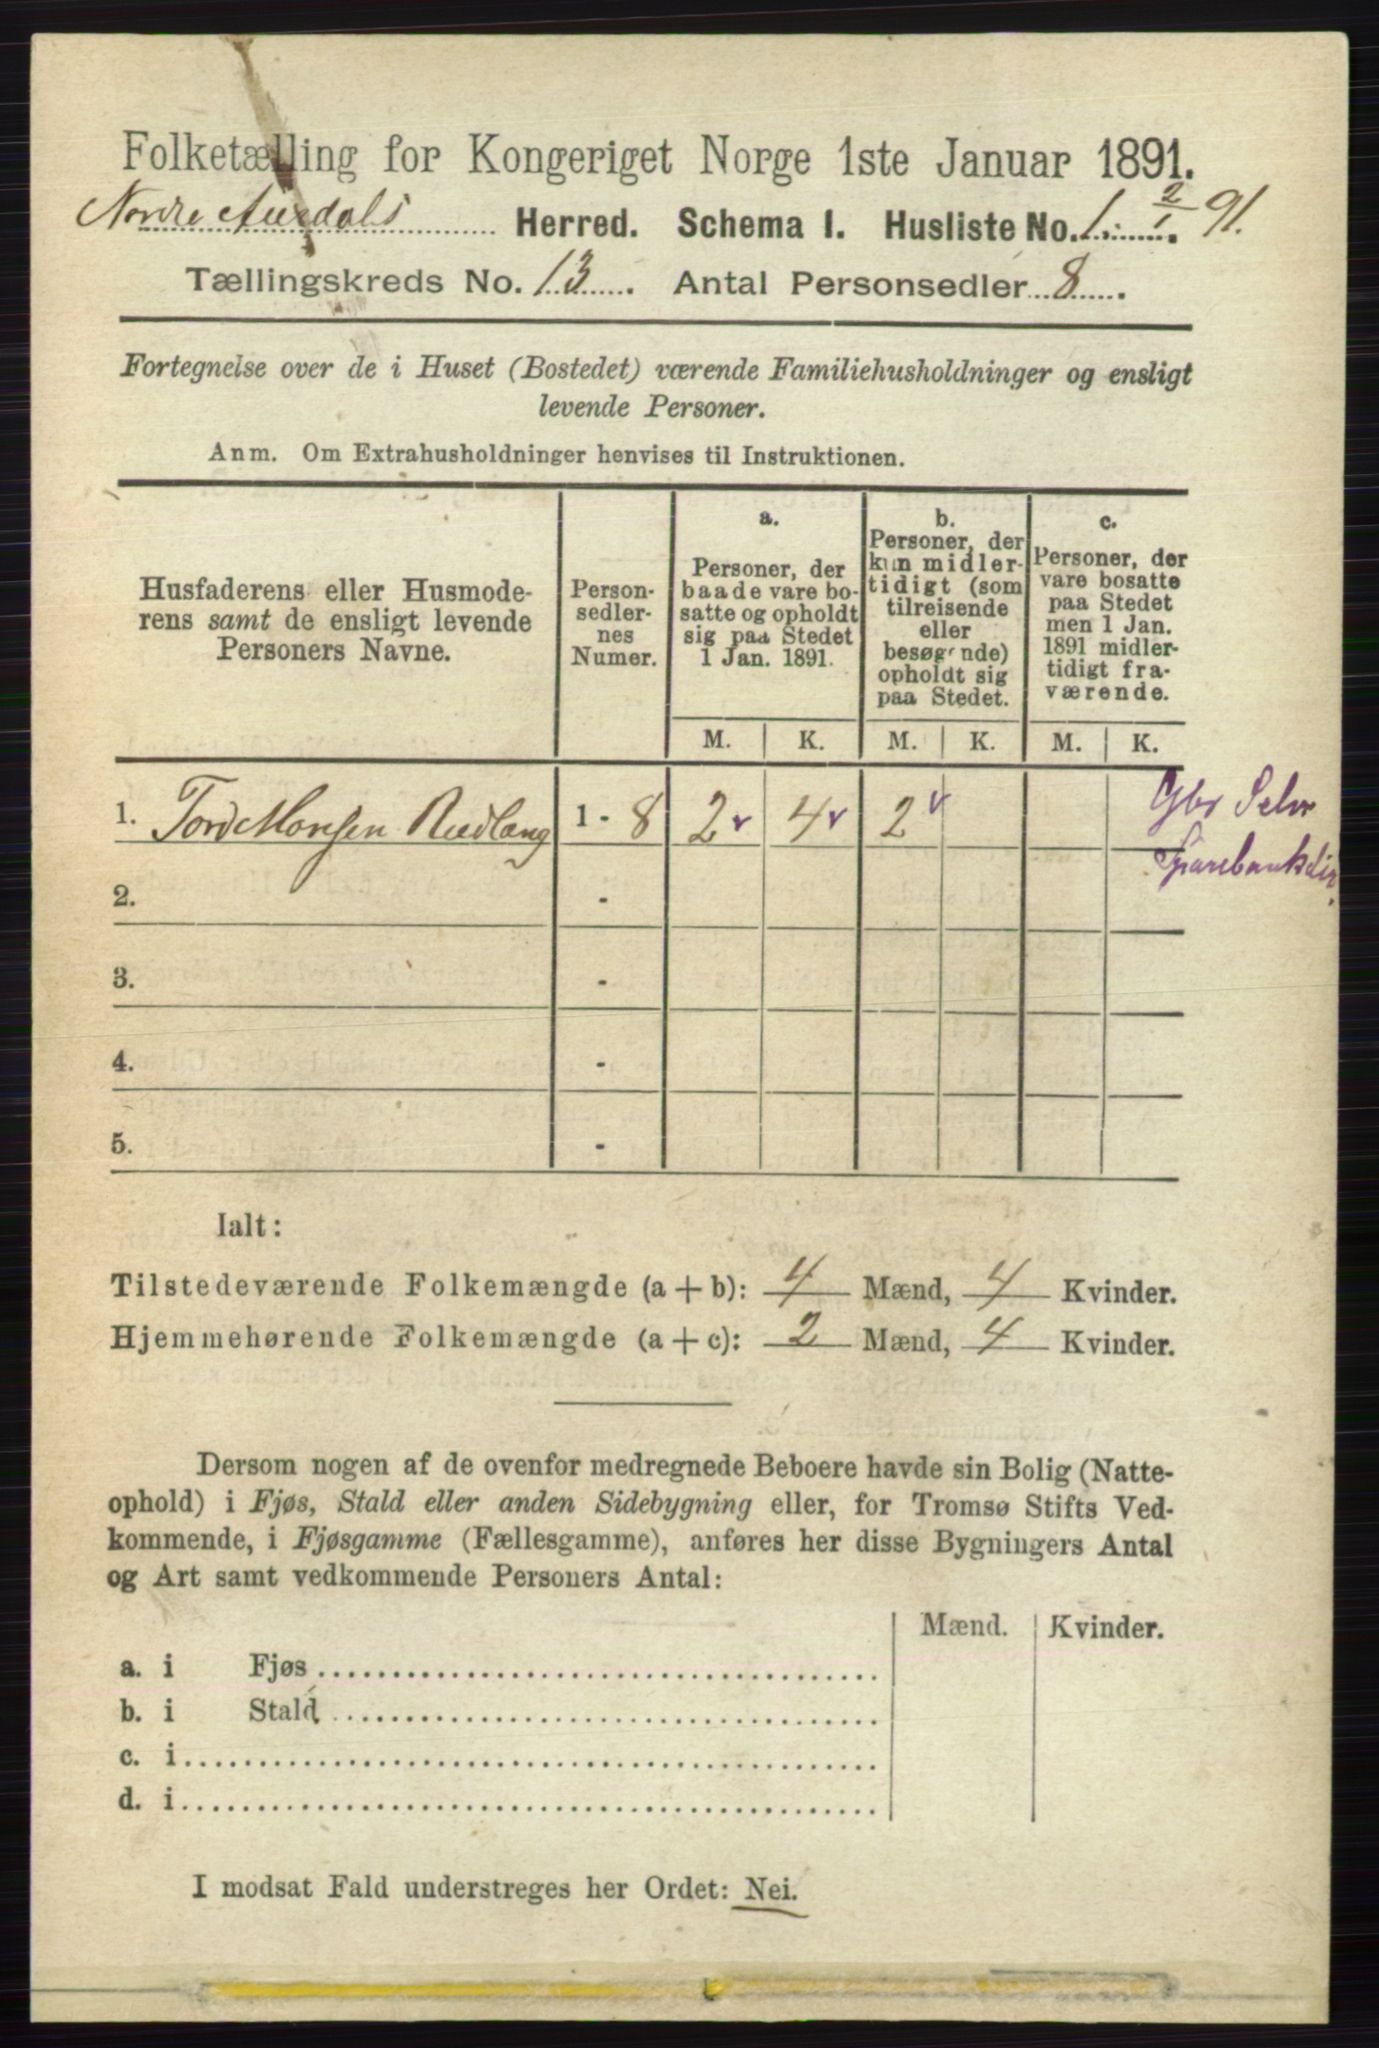 Folketælling for Kongeriget Norge 1ste Januar 1891.
Nordre Aurdals Herred. Schema I. Husliste No. 1. 2/1 91.
Tællingskreds No. 13. Antal Personsedler 8.
Fortegnelse over de i Huset (Bostedet) værende Familiehusholdninger og ensligt
levende Personer.
Anm. Om Extrahusholdninger henvises til Instruktionen.
Husfaderens eller Husmode-
rens samt de ensligt levende
Personers Navne.
Person-
sedler-
nes
Numer.
a.
Personer, der
baade vare bo-
satte og opholdt
sig paa Stedet
1 Jan. 1891.
b.
Personer, der
kun midler-
tidigt (som
tilreisende
eller
besøgende)
opholdt sig
paa Stedet.
c.
Personer, der
vare bosatte
paa Stedet
men 1 Jan.
1891 midler-
tidigt fra-
værende.
M. K. M. K. M. K.
1. Tord Monsen Rudlang 1 - 8 2 4 2 Gbr Selv
Sparebankdir.
2. -
3. -
4. -
5. -
Ialt:
Tilstedeværende Folkemængde (a + b): 4 Mænd, 4 Kvinder.
Hjemmehørende Folkemængde (a + c): 2 Mænd, 4 Kvinder.
Dersom nogen af de ovenfor medregnede Beboere havde sin Bolig (Natte-
ophold) i Fjøs, Stald eller anden Sidebygning eller, for Tromsø Stifts Ved-
kommende, i Fjøsgamme (Fællesgamme), anføres her disse Bygningers Antal
og Art samt vedkommende Personers Antal:
Mænd. Kvinder.
a. i Fjøs
b. i Stald
c. i
d. i
I modsat Fald understreges her Ordet: Nei.